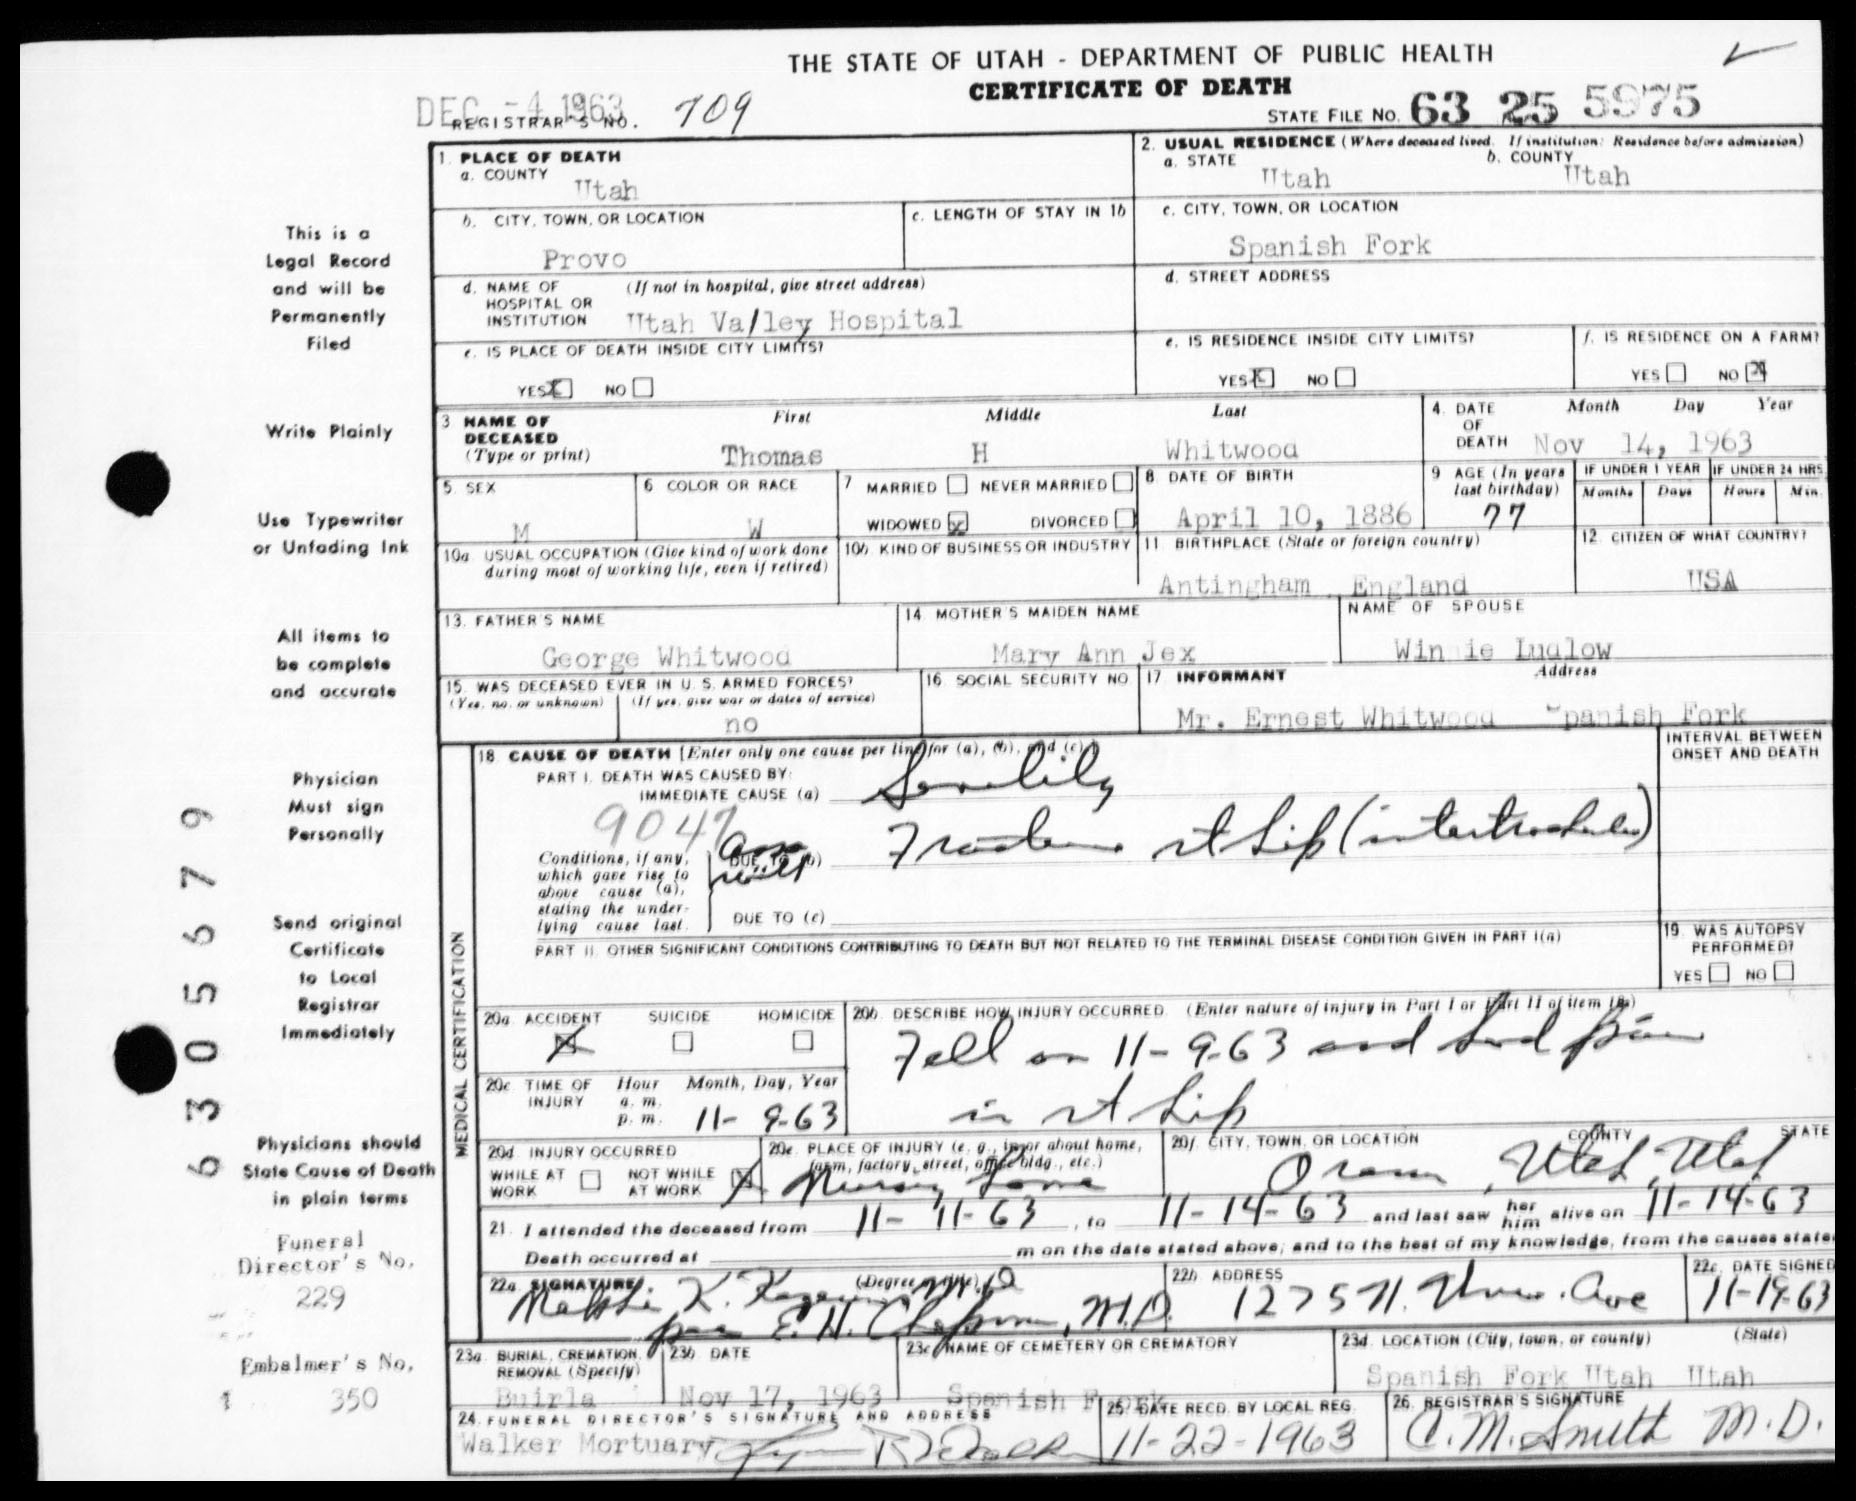 THE STATE OF UTAH - DEPARTMENT OF PUBLIC HEALTH
CERTIFICATE OF DEATH
DEC -4 1963
REGISTRAR'S NO. 709
STATE FILE NO. 63 25 5975
1. PLACE OF DEATH
a. COUNTY
Utah
2. USUAL RESIDENCE (Where deceased lived. If institution: Residence before admission)
a. STATE b. COUNTY
Utah Utah
b. CITY, TOWN, OR LOCATION
Provo
c. LENGTH OF STAY IN 1b
c. CITY, TOWN, OR LOCATION
Spanish Fork
d. NAME OF HOSPITAL OR INSTITUTION (If not in hospital, give street address)
Utah Valley Hospital
d. STREET ADDRESS
e. IS PLACE OF DEATH INSIDE CITY LIMITS?
YES X NO
e. IS RESIDENCE INSIDE CITY LIMITS?
YES X NO
f. IS RESIDENCE ON A FARM?
YES NO X
3 NAME OF DECEASED (Type or print)
First Middle Last
Thomas H Whitwood
4. DATE OF DEATH Month Day Year
Nov 14, 1963
5. SEX
M
6 COLOR OR RACE
W
7 MARRIED NEVER MARRIED
WIDOWED X DIVORCED
8. DATE OF BIRTH
April 10, 1886
9 AGE (In years last birthday)
77
IF UNDER 1 YEAR
Months Days
IF UNDER 24 HRS.
Hours Min.
10a USUAL OCCUPATION (Give kind of work done during most of working life, even if retired)
10b. KIND OF BUSINESS OR INDUSTRY
11. BIRTHPLACE (State or foreign country)
Antingham England
12. CITIZEN OF WHAT COUNTRY?
USA
13. FATHER'S NAME
George Whitwood
14 MOTHER'S MAIDEN NAME
Mary Ann Jex
NAME OF SPOUSE
Winnie Ludlow
15. WAS DECEASED EVER IN U. S. ARMED FORCES?
(Yes, no, or unknown) (If yes, give war or dates of service)
no
16 SOCIAL SECURITY NO
17 INFORMANT Address
Mr. Ernest Whitwood Spanish Fork
MEDICAL CERTIFICATION
18 CAUSE OF DEATH [Enter only one cause per line for (a), (b), and (c)]
PART I. DEATH WAS CAUSED BY:
IMMEDIATE CAUSE (a) Senility
9047
Conditions, if any, which gave rise to above cause (a), stating the underlying cause last.
DUE TO (b) Fracture rt hip (intertrochanteric)
DUE TO (c)
INTERVAL BETWEEN ONSET AND DEATH
PART II. OTHER SIGNIFICANT CONDITIONS CONTRIBUTING TO DEATH BUT NOT RELATED TO THE TERMINAL DISEASE CONDITION GIVEN IN PART I(a)
19. WAS AUTOPSY PERFORMED?
YES NO
20a. ACCIDENT SUICIDE HOMICIDE
X
20b. DESCRIBE HOW INJURY OCCURRED. (Enter nature of injury in Part I or Part II of item 18.)
Fell on 11-9-63 and had pain
in rt hip
20c TIME OF INJURY Hour Month, Day, Year
a. m.
p. m. 11- 9-63
20d. INJURY OCCURRED
WHILE AT WORK NOT WHILE AT WORK X
20e. PLACE OF INJURY (e. g., in or about home, farm, factory, street, office bldg., etc.)
Nursing home
20f. CITY, TOWN, OR LOCATION COUNTY STATE
Orem, Utah, Utah
21. I attended the deceased from 11-11-63, to 11-14-63 and last saw her him alive on 11-14-63
Death occurred at m on the date stated above; and to the best of my knowledge, from the causes state
22a. SIGNATURE (Degree or title)
K. M.D
per E. H. Chapman, M.D.
22b ADDRESS
1275 N. Univ. Ave
22c. DATE SIGNED
11-19-63
23a. BURIAL, CREMATION, REMOVAL (Specify)
Buirla
23b DATE
Nov 17, 1963
23c NAME OF CEMETERY OR CREMATORY
Spanish Fork
23d. LOCATION (City, town, or county) (State)
Spanish Fork Utah Utah
24. FUNERAL DIRECTOR'S SIGNATURE AND ADDRESS
Walker Mortuary
25. DATE RECD. BY LOCAL REG.
11-22-1963
26. REGISTRAR'S SIGNATURE
C. M. Smith M. D.
This is a
Legal Record
and will be
Permanently
Filed
Write Plainly
Use Typewriter
or Unfading Ink
All items to
be complete
and accurate
Physician
Must sign
Personally
Send original
Certificate
to Local
Registrar
Immediately
Physicians should
State Cause of Death
in plain terms
Funeral
Director's No.
229
Embalmer's No.
350
6305679